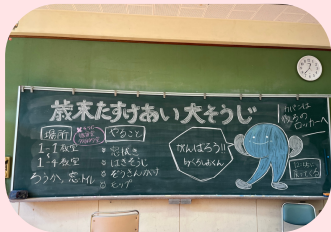 歳末たすけあい大そうじ
場所
1-1教室
1-4教室
ろうか、窓、トイレ
やること
窓拭き
はきそうじ
ぞうきんがけ
モップ
がんばろう!!
カバンは
後ろの
ロッカーへ